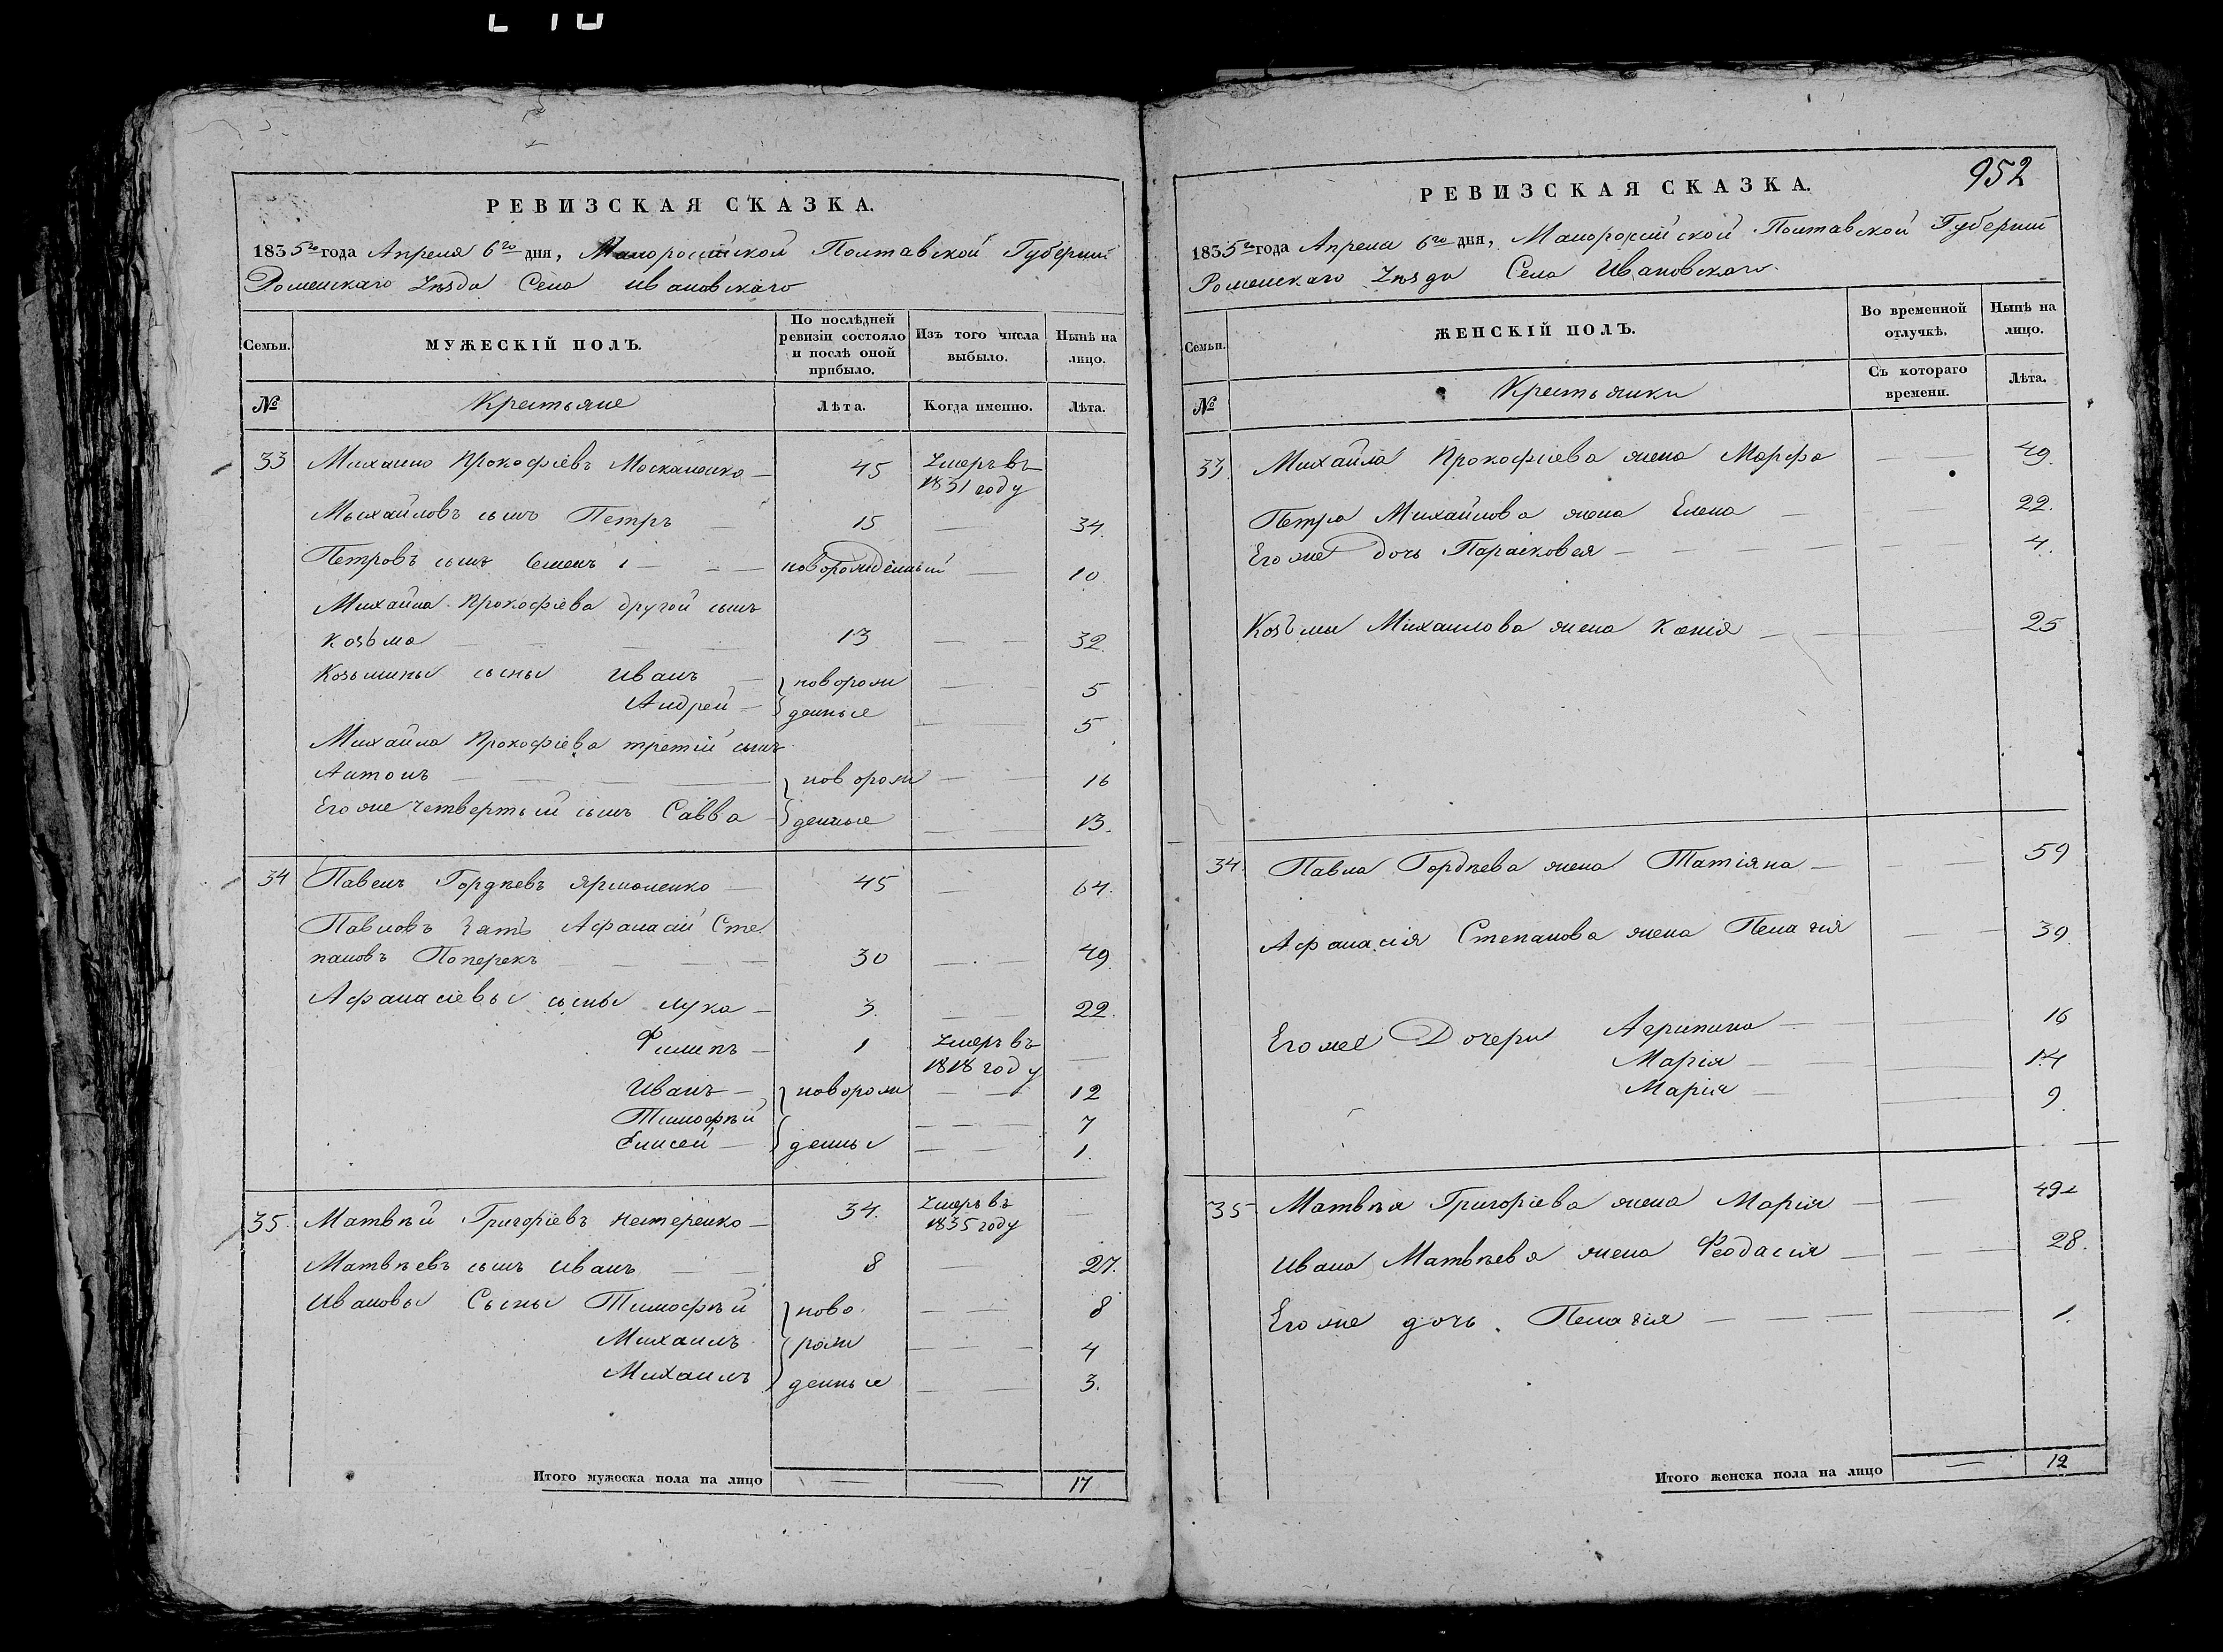 РЕВИЗСКАЯ СКАЗКА.
1835го года Апреля 6го дня, Малороссійской Полтавской Губерніи
Роменскаго Уѣзда Села Ивановскаго
Семьи.
МУЖЕСКІЙ ПОЛЪ.
По послѣдней ревизіи состояло и послѣ оной прибыло.
Изъ того числа выбыло.
Нынѣ на лицо.
№
Крестьяне
Лѣта.
Когда именно.
Лѣта.
33 Михайло Прокофіевъ Москаленко — 45 Умеръ въ
1831 году
Михайловъ сынъ Петръ — 15 — 34.
Петровъ сынъ Семенъ — новорожденный — 10
Михайла Прокофіева другой сынъ
Козьма — 13 — 32.
Козьмины сыны Иванъ — новорож — 5
Андрей — денные — 5
Михайла Прокофіева третій сынъ
Антонъ — новорож — 16
Его же четвертый сынъ Савва — денные — 13.
34 Павелъ Гордѣевъ Ярмоленко — 45 — 64.
Павловъ зять Афанасій Сте
пановъ Поперекъ — 30 — 49
Афанасіевы сыны Лука — 3. — 22.
Филипъ — 1 Умеръ въ —
1818 году
Иванъ — новорож — 12
Тимофѣй — 7
Елисей — денны — 1.
35. Матвѣй Григоріевъ Нестеренко — 34. Умеръ въ —
1835 году
Матвѣевъ сынъ Иванъ — 8 — 27.
Ивановы Сыны Тимофѣй ново — 8
Михаилъ рож — 4
Михаилъ денные — 3.
Итого мужеска пола на лицо — — 17
952
РЕВИЗСКАЯ СКАЗКА.
1835го года Апреля 6го дня, Малороссійской Полтавской Губерніи
Роменскаго Уѣзда Села Ивановскаго
Семьи.
ЖЕНСКІЙ ПОЛЪ.
Во временной отлучкѣ.
Нынѣ на лицо.
№
Крестьянки
Съ котораго времени.
Лѣта.
33 Михайла Прокофіева жена Марфа — 49.
Петра Михайлова жена Елена — 22.
Его же дочь Парасковея — 4.
Козьмы Михаилова жена Ксенія — 25
34. Павла Гордѣева жена Татіяна — 59
Афанасія Степанова жена Пелагія — 39.
Его же Дочери Агрипина — 16
Марія — 14
Марія — 9.
35 Матвѣя Григоріева жена Марія — 49
Ивана Матвѣева жена Феодасія — 28.
Его же дочь Пелагія — 1.
Итого женска пола на лицо — 12